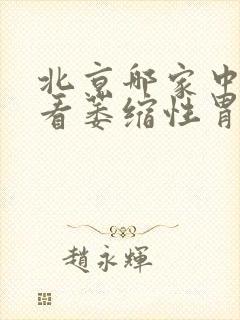 北京那家中
看萎缩性胃
趙永輝